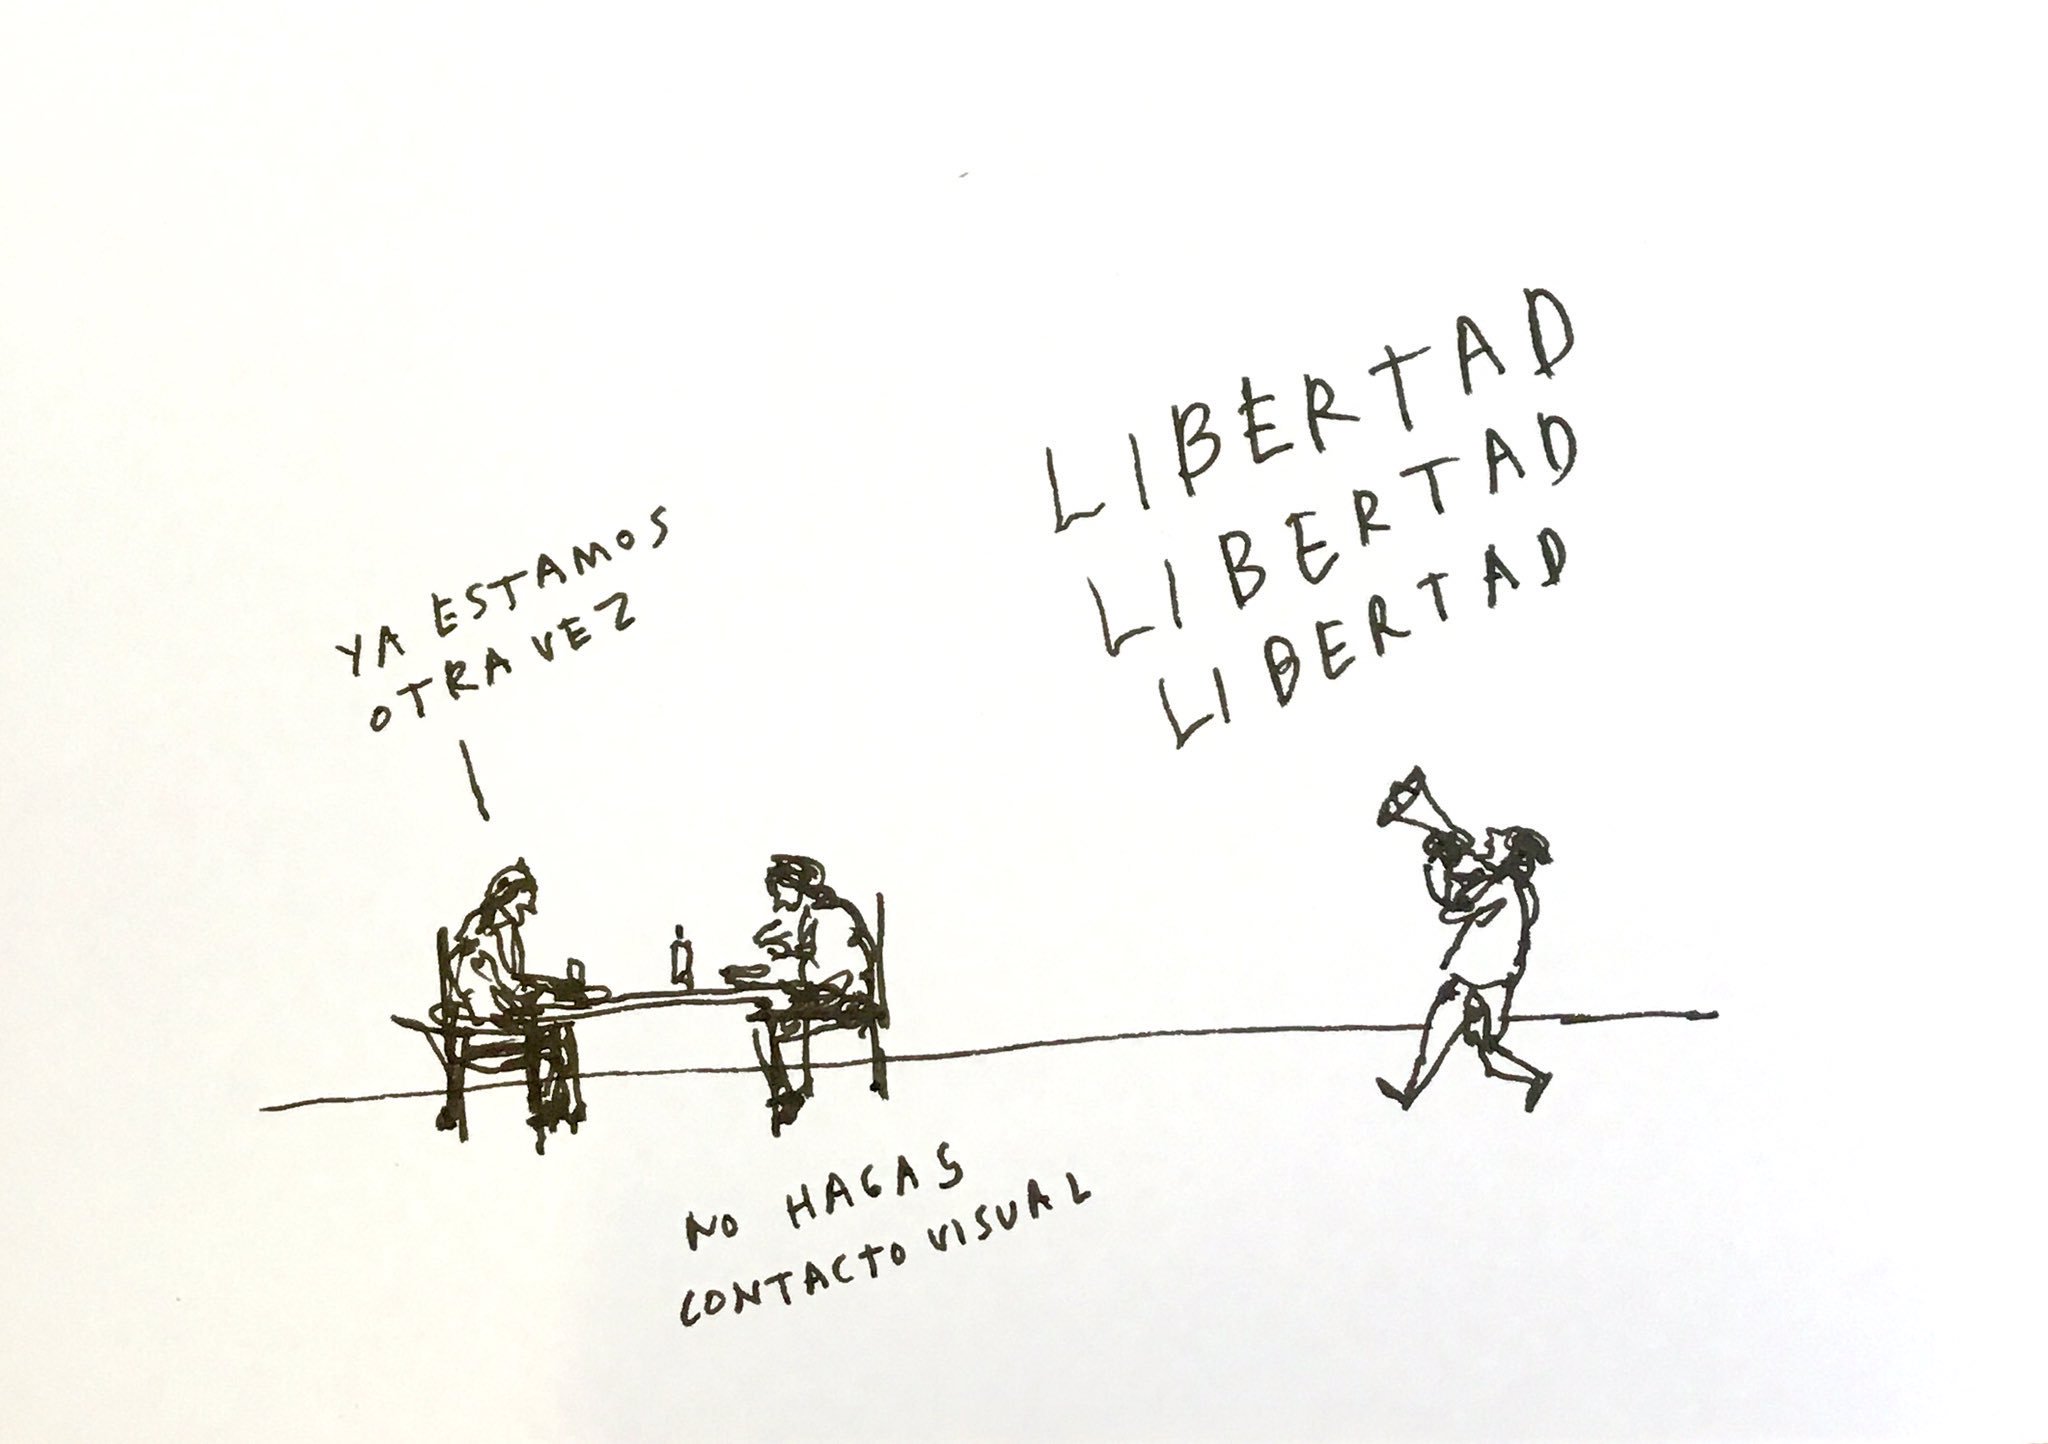 YA ESTAMOS
OTRA VEZ
LIBERTAD
LIBERTAD
LIBERTAD
NO HAGAS
CONTACTO VISUAL